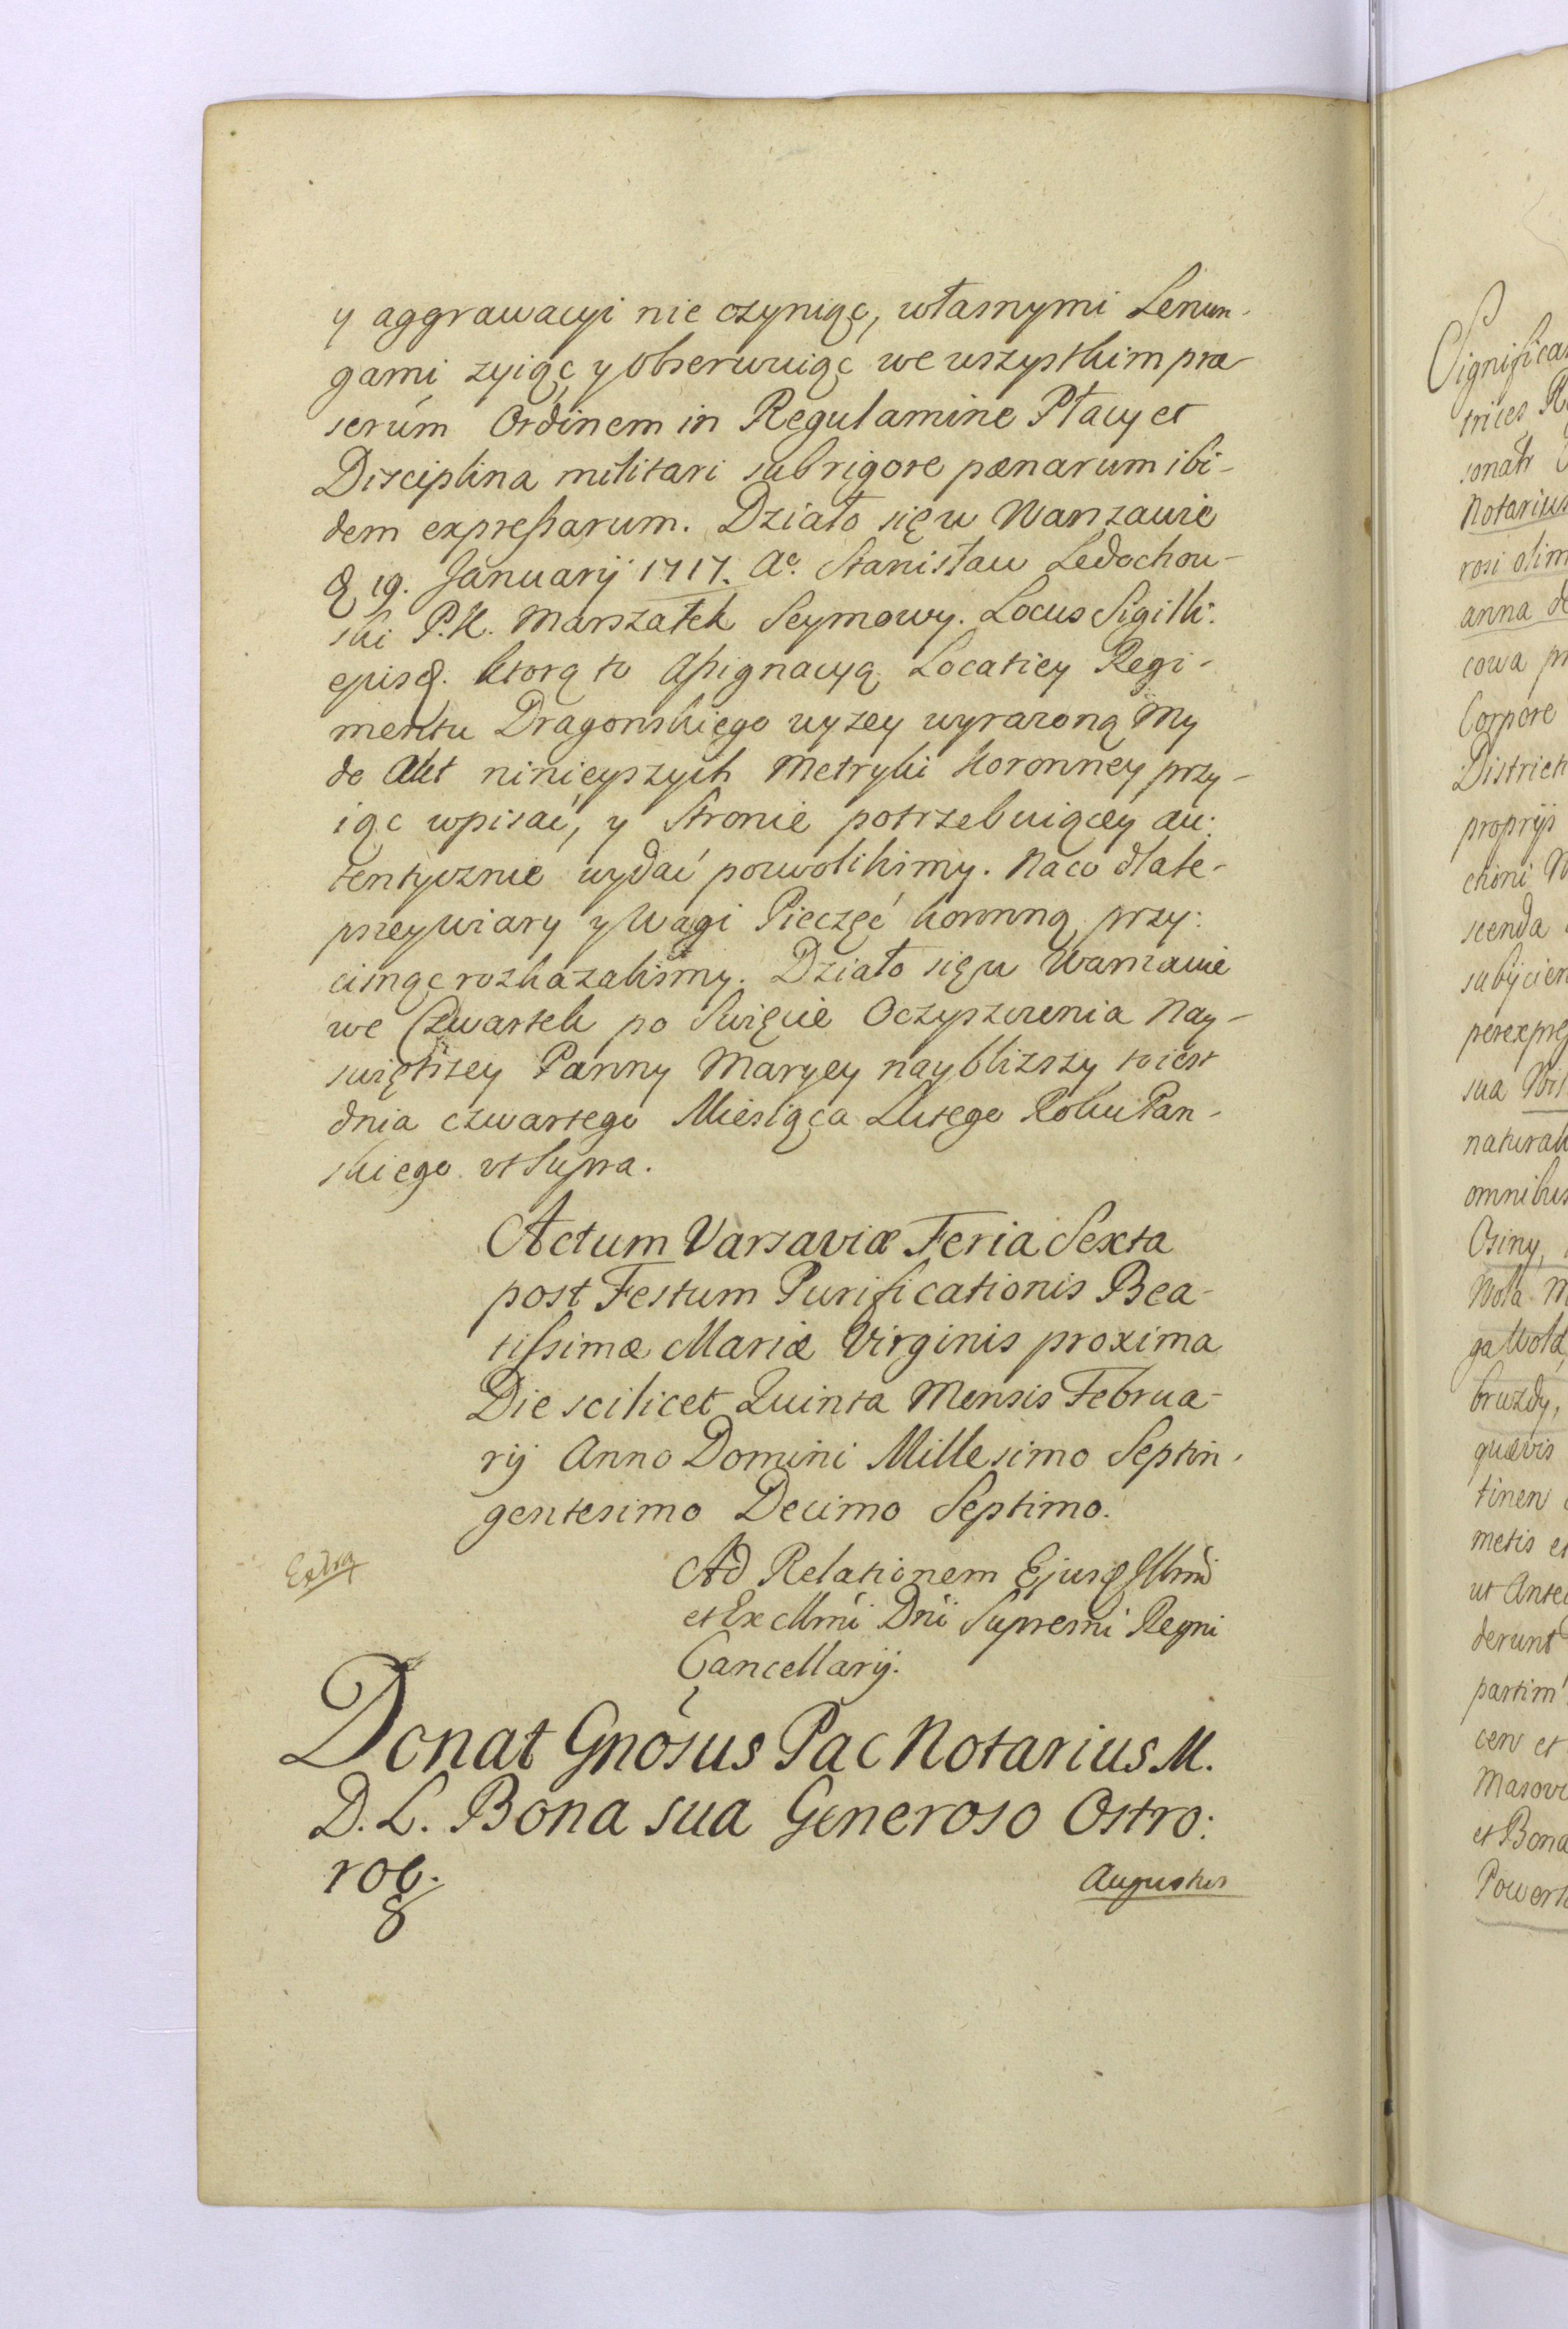 y aggrawacyi nie czyniąc, własnymi Lenun-
gami zyiąc y obserwuiąc we wszystkim pra
serúm Ordinem in Regulamine Płacy et
Disciplina militari sub rigore pœnarum ibi-
dem expreſsarum. Działo się w Warszawie
19. Januarij 1717. Ao. Stanisław Ledochow-
ski P.K. Marszałek Seymowy. Locus Sigilli:
ejusq. ktorą to Aſsignacyą Locatiey Regi-
mentu Dragonskiego wyzey wyrazoną My
do Akt ninieyszych Metryki Koronney przy-
iąc wpisać, y Stronie potrzebuiącey au:
tentycznie wydać pozwolilismy. Na co dla le-
pszey wiary y Wagi Pieczęć koronną przy:
cisnąc rozkazalismy. Działo się w Warszawie
we Czwartek po Swięcie Oczyszczenia Nay-
swiętszey Panny Maryey naybliższy to iest
dnia czwartego Miesiąca Lutego Roku Pan-
skiego vt Supra.
Actum Varsaviæ Feria Sexta
post Festum Purificationis Bea-
tiſsimæ Mariæ Virginis proxima
Die scilicet Quinta Mensis Februa-
rij Anno Domini Millesimo Septin-
gentesimo Decimo Septimo.
Ad Relationem Ejusq Illmi
et Excllmi Dni Supremi Regni
Cancellarij.
Donat Gnosus Pac Notarius M.
D. L. Bona sua Generoso Ostro:
rog.
Augustus
Significa
trices
sonatr
Notarius
rosi olim
anna de
cowa pr
Corpore
District
proprijs
chini
scenda
subijcien
sua
naturali
omnibus
Osiny,
Wola
ga Wola
bruzdy,
quævis
tinen
metis et
ut Antec
derunt
partim
cen et
Masovi
et Bona